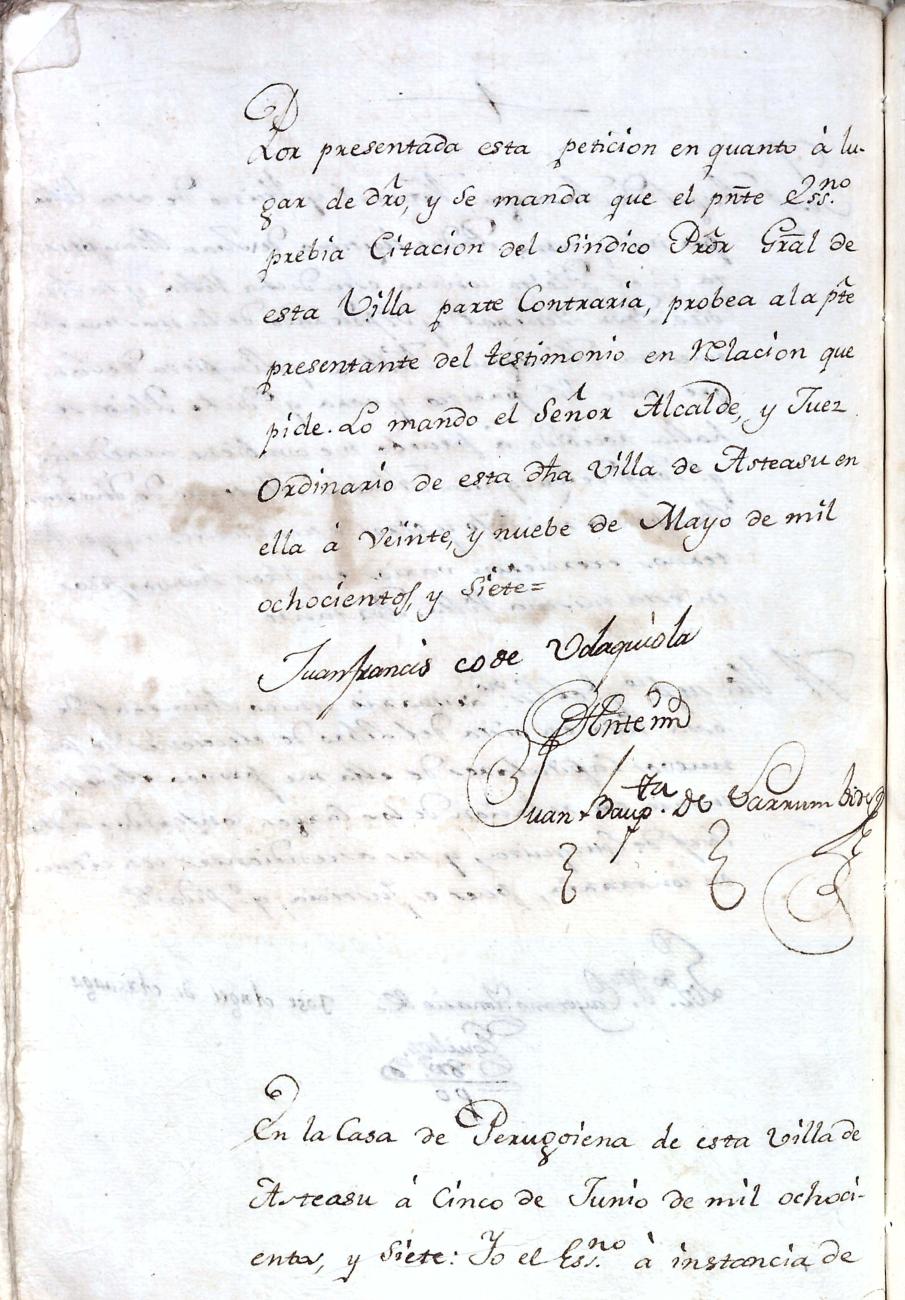 Por presentada esta peticion en quanto à lu-
gar de dro, y se manda que el pnte Ess.no
prebia Citacion del Sindico Pror Gral de
esta Villa parte Contraria, probea a la pte
presentante del testimonio en Relacion que
pide. Lo mando el Señor Alcalde, y Juez
Ordinario de esta dha Villa de Asteasu en
ella à Veinte, y nuebe de Mayo de mil
ochocientos, y Siete=
Juan francisco de Vdaquiola
Ante mi
Juan Baup.ta de Larrumbide
En la Casa de Perugoiena de esta Villa de
Asteasu à Cinco de Junio de mil ochoci-
entos, y Siete: Yo el Ess.no à instancia de